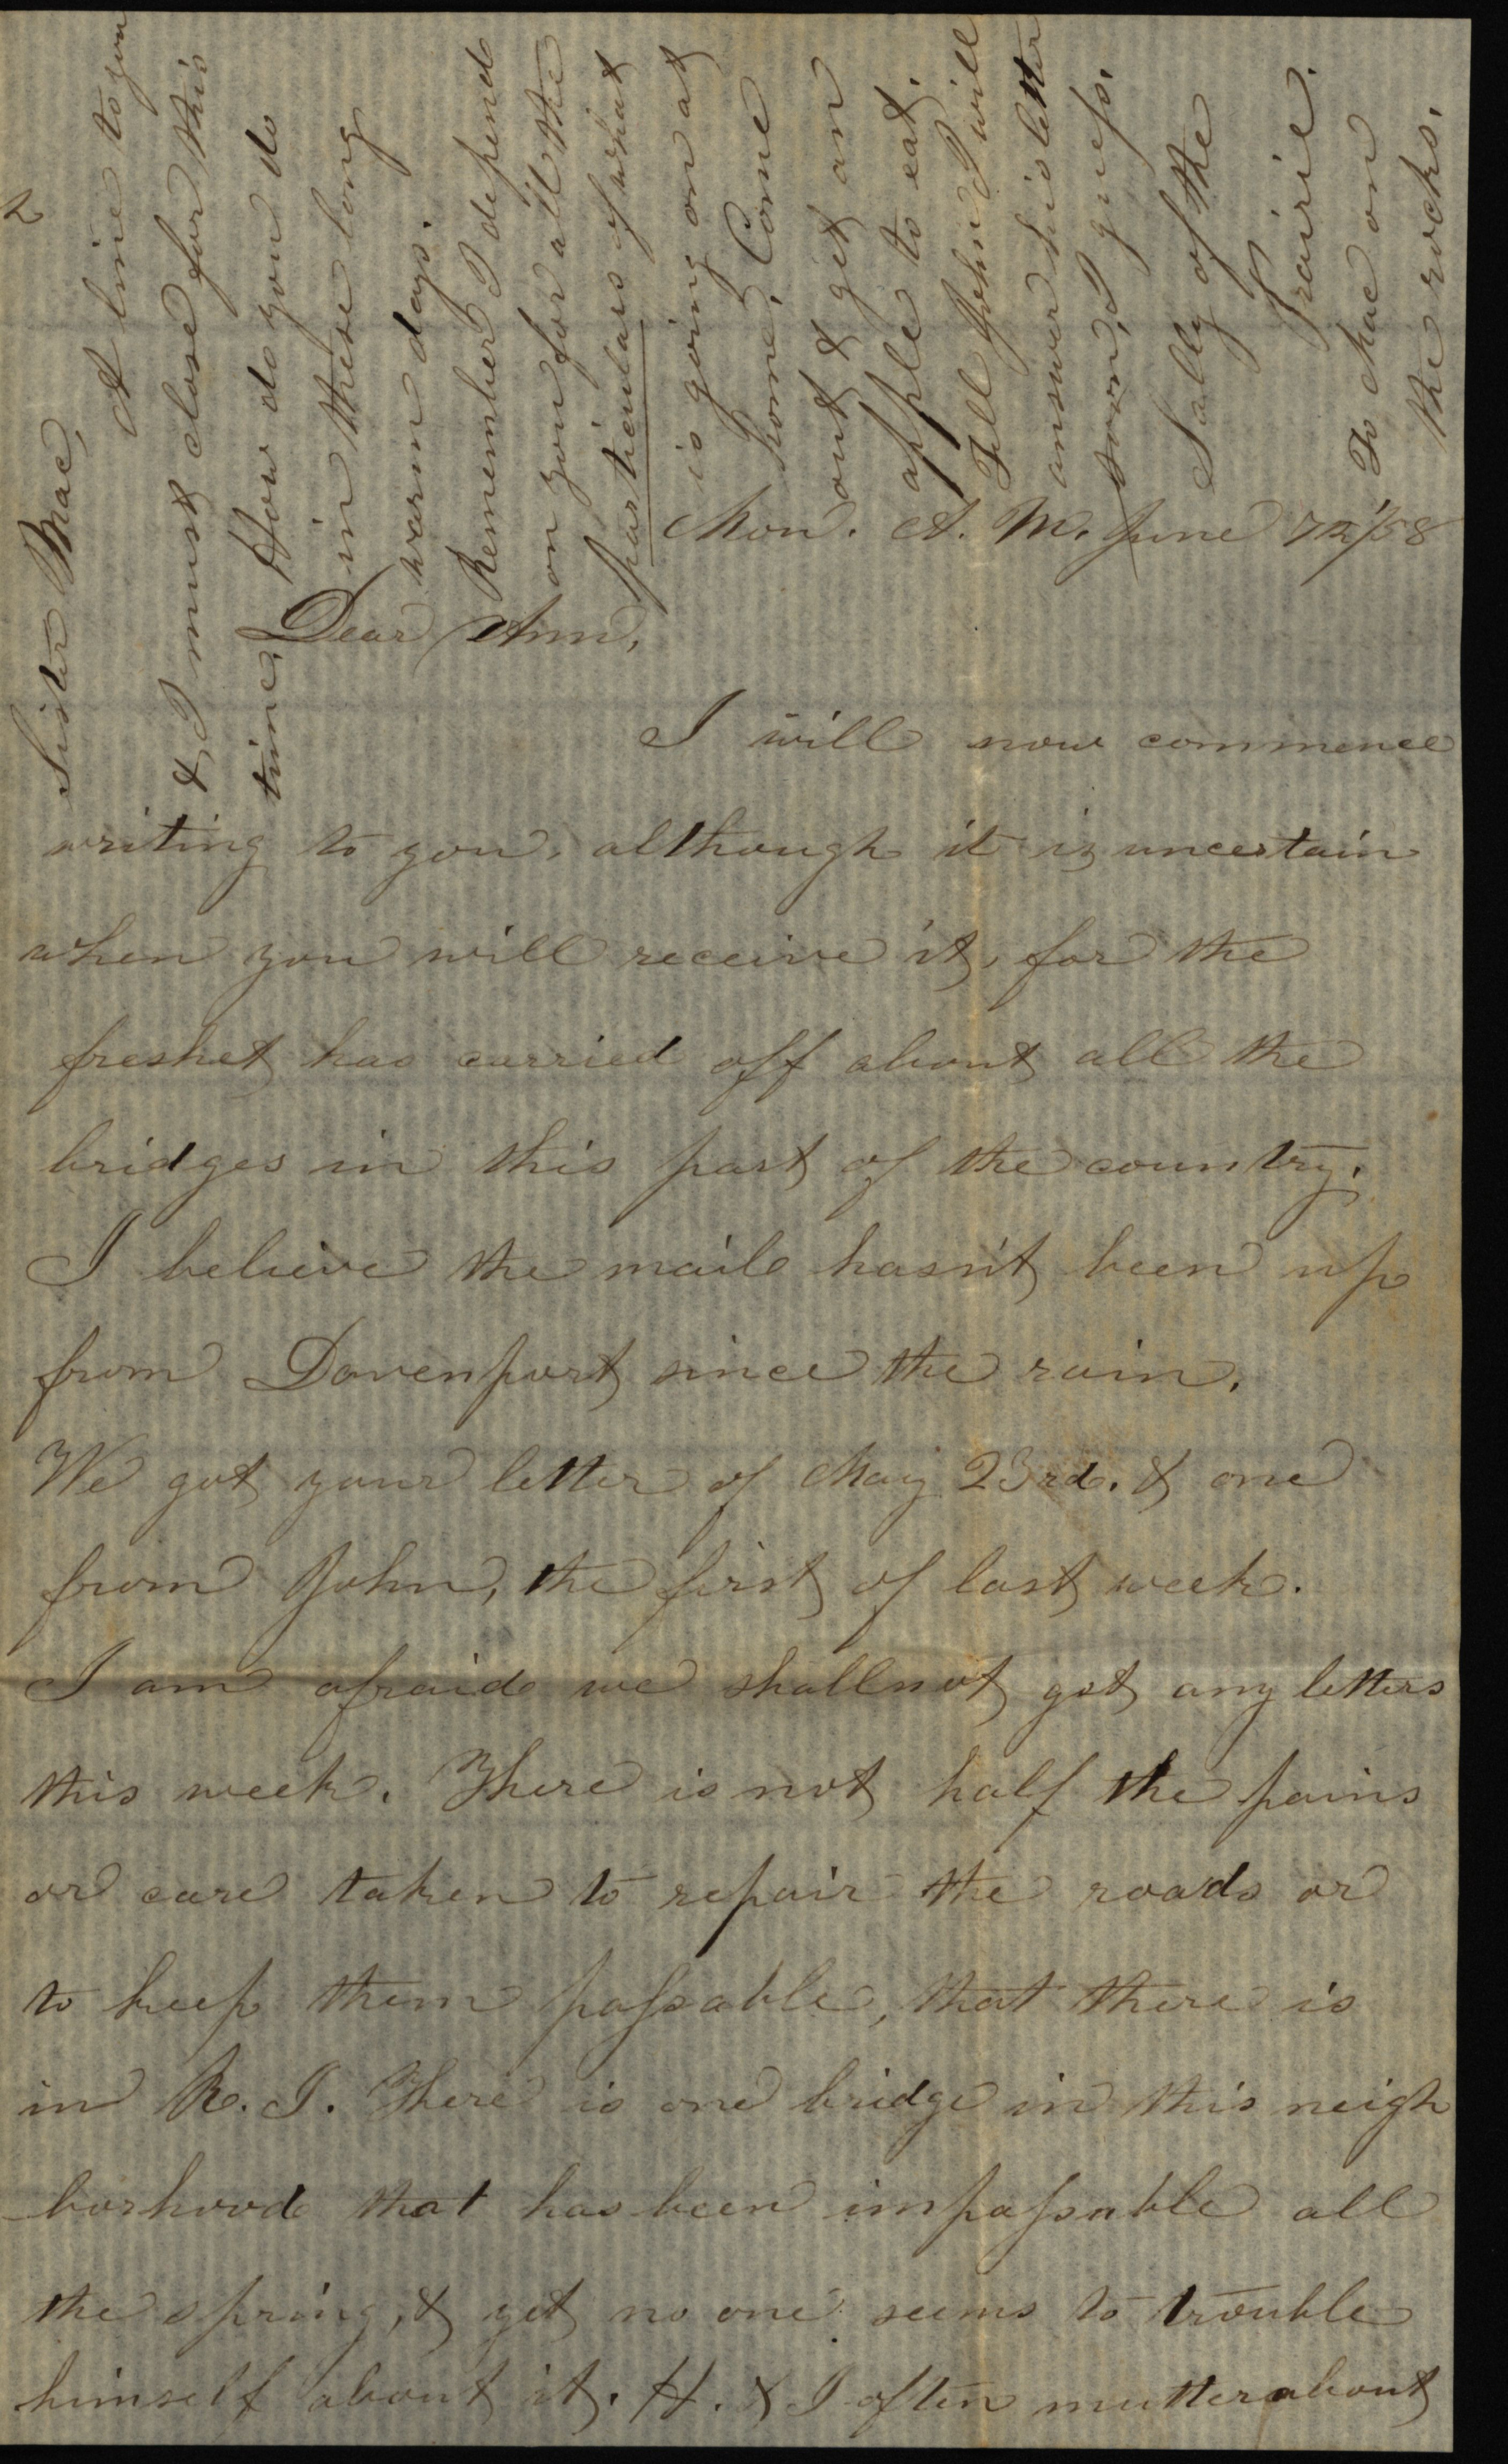 Mon. A. M. June 7th/58
Dear Ann,
I will now commence
writing to you, although it is uncertain
when you will receive it, for the
freshet has carried off about all the
bridges in this part of the country.
I believe the mail hasn't been up
from Davenport since the rain.
We got your letter of May 23rd. & one
from John, the first of last week.
I am afraid we shall not get any letters
this week. There is not half the pains
or care taken to repair the roads or
to keep them passable, that there is
in R. I. There is one bridge in this neigh
borhood that has been impassable all
the spring, & yet no one seems to trouble
himself about it. H. & I often mutter about
Sister Mac,
A line to you
& I must close for this
time. How do you do
in these long
warm days.
Remember I depend
on you for all the
particulars of what
is going on at
home. Come
out & get an
apple to eat.
Tell John I will
answer his letter
soon, I guess.
Sally of the
Prairie.
To Mac on
the rocks.